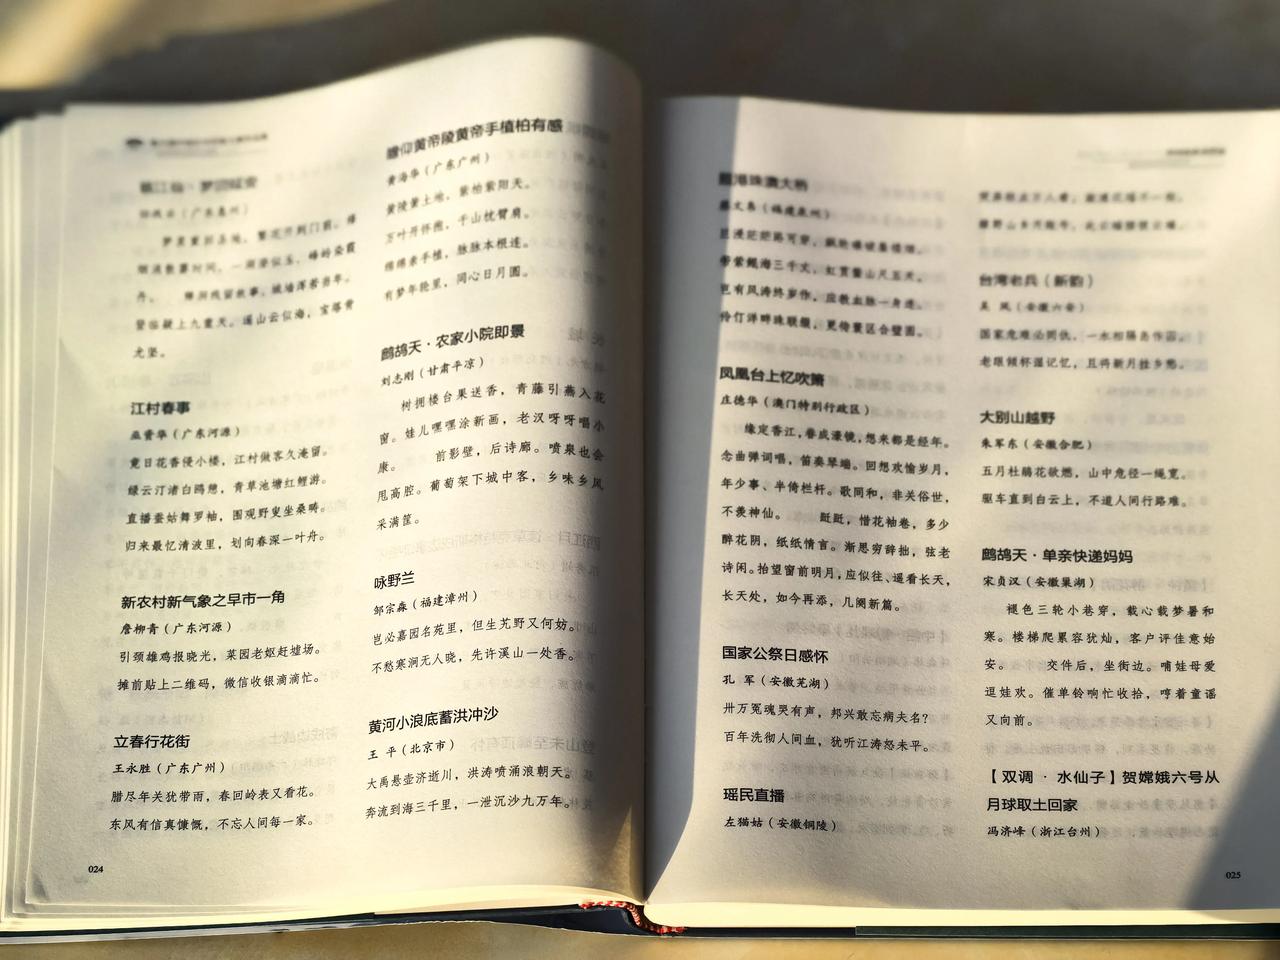 江村春事
巫青华（广东河源）
竟日花香侵小楼，江村做客久淹留。
绿云汀渚白鸥憩，青草池塘红鲤游。
直播蚕姑舞罗袖，围观野叟坐桑畴。
归来最忆清波里，划向春深一叶舟。
新农村新气象之早市一角
詹柳青（广东河源）
引颈雄鸡报晓光，菜园老妪赶墟场。
摊前贴上二维码，微信收银滴滴忙。
立春行花街
王永胜（广东广州）
腊尽年关犹带雨，春回岭表又看花。
东风有信真慷慨，不忘人间每一家。
024
瞻仰黄帝陵黄帝手植柏有感
黄海华（广东广州）
黄陵黄土地，紫柏紫阳天。
万叶开怀抱，千山枕臂肩。
绵绵亲手植，脉脉本根连。
有梦年轮里，同心日月圆。
鹧鸪天·农家小院即景
刘志刚（甘肃平凉）
树拥楼台果送香，青藤引燕入花
窗。娃儿嘿嘿涂新画，老汉呀呀唱小
康。 前影壁，后诗廊。喷泉也会
甩高腔。葡萄架下城中客，乡味乡风
采满筐。
咏野兰
邹宗森（福建漳州）
岂必嘉园名苑里，但生艽野又何妨。
不愁寒涧无人晓，先许溪山一处香。
黄河小浪底蓄洪冲沙
王 平（北京市）
大禹悬壶济逝川，洪涛喷涌浪朝天。
奔流到海三千里，一泄沉沙九万年。
港珠澳大桥
凤凰台上忆吹箫
庄德华（澳门特别行政区）
缘定香江，眷成濠镜，想来都是经年。
念曲弹词唱，笛奏琴端。回想欢愉岁月，
年少事、半倚栏杆。歌同和，非关俗世，
不羡神仙。 跹跹，惜花袖卷，多少
醉花阴，纸纸情言。渐恶穷辞拙，弦老
诗闲。抬望窗前明月，应似往、遥看长天，
长天处，如今再添，几阕新篇。
国家公祭日感怀
孔 军（安徽芜湖）
卅万冤魂哭有声，邦兴敢忘病夫名？
百年洗彻人间血，犹听江涛怒未平。
瑶民直播
左猫姑（安徽铜陵）
台湾老兵（新韵）
吴 凤（安徽六安）
国家危难必同仇，一水相隔岛作囚。
老眼倾杯温记忆，且将新月挂乡愁。
大别山越野
朱军东（安徽合肥）
五月杜鹃花欲燃，山中危径一绳宽。
驱车直到白云上，不道人间行路难。
鹧鸪天·单亲快递妈妈
宋贞汉（安徽巢湖）
褪色三轮小巷穿，载心载梦暑和
寒。楼梯爬累容犹灿，客户评佳意始
安。 交件后，坐街边。哺娃母爱
逗娃欢。催单铃响忙收拾，哼着童谣
又向前。
【双调·水仙子】贺嫦娥六号从
月球取土回家
冯济峰（浙江台州）
025